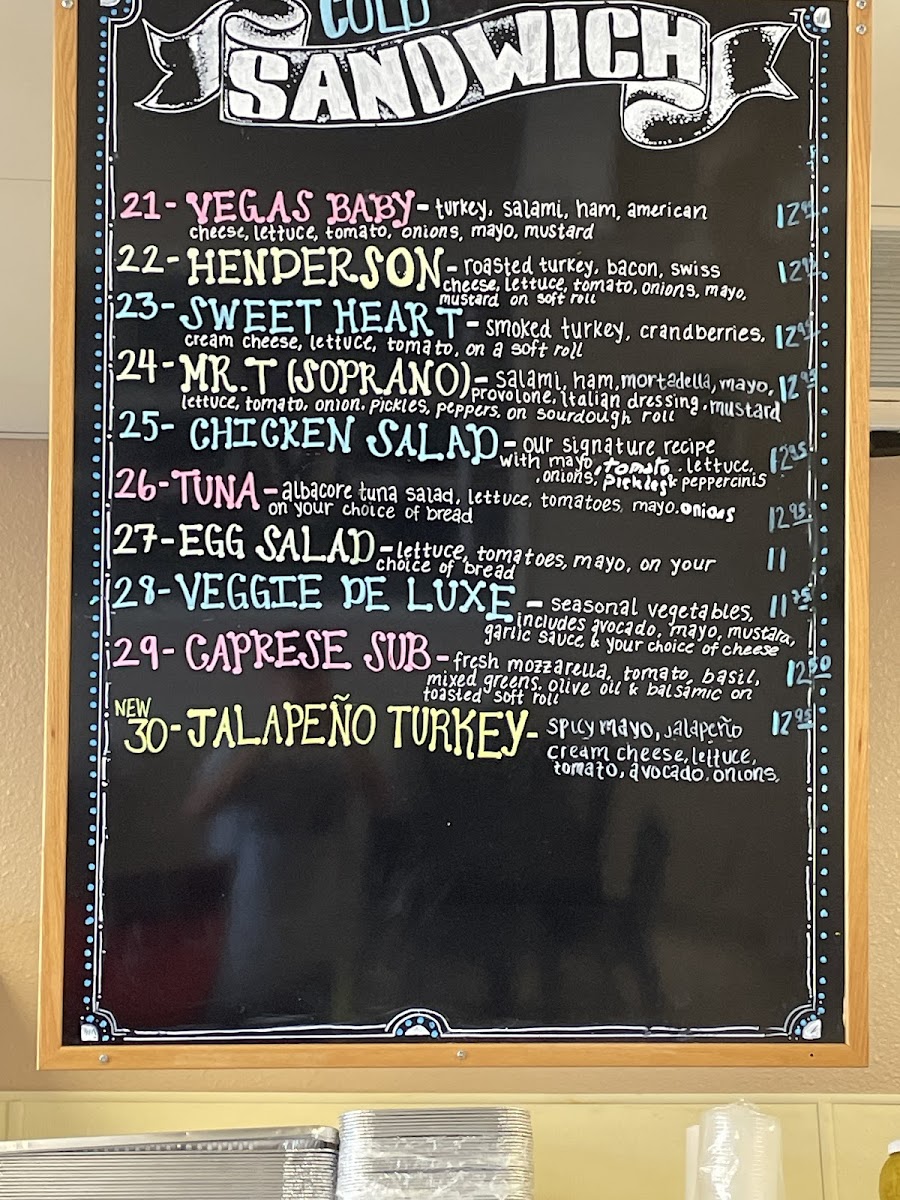 COLD
SANDWICH
21- VEGAS BABY - turkey, salami, ham, american 12.95
cheese, lettuce, tomato, onions, mayo, mustard
22- HENDERSON - roasted turkey, bacon, swiss 12.95
cheese, lettuce, tomato, onions, mayo,
mustard on soft roll
23- SWEET HEART - smoked turkey, crandberries, 12.95
cream cheese, lettuce, tomato, on a soft roll
24- MR.T (SOPRANO) - salami, ham, mortadella, mayo, 12.95
provolone, italian dressing, mustard
lettuce, tomato, onion, pickles, peppers, on sourdough roll
25- CHICKEN SALAD - our signature recipe 12.95
with mayo, tomato, lettuce,
, onions, pickles & peppercinis
26- TUNA - albacore tuna salad, lettuce, tomatoes, mayo, onions
on your choice of bread 12.95
27- EGG SALAD - lettuce, tomatoes, mayo, on your 11
choice of bread
28- VEGGIE DE LUXE - seasonal vegetables, 11.75
includes avocado, mayo, mustard,
garlic sauce, & your choice of cheese
29- CAPRESE SUB - fresh mozzarella, tomato, basil, 12.50
mixed greens, olive oil & balsamic on
toasted soft roll
NEW
30- JALAPEÑO TURKEY - spicy mayo, jalapeño 12.95
cream cheese, lettuce,
tomato, avocado, onions,